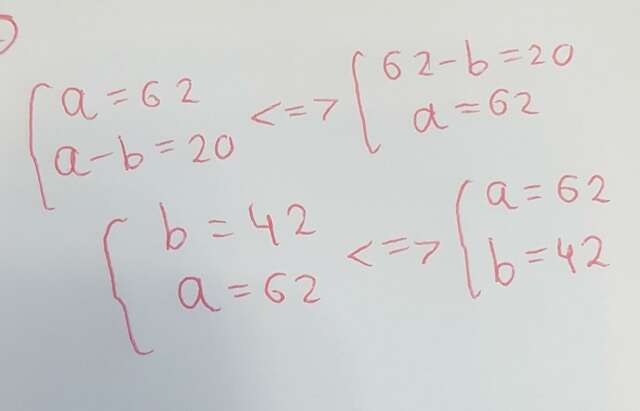 a = 62 <=> 62 - b = 20
a - b = 20 a = 62
b = 42 <=> a = 62
a = 62 b = 42